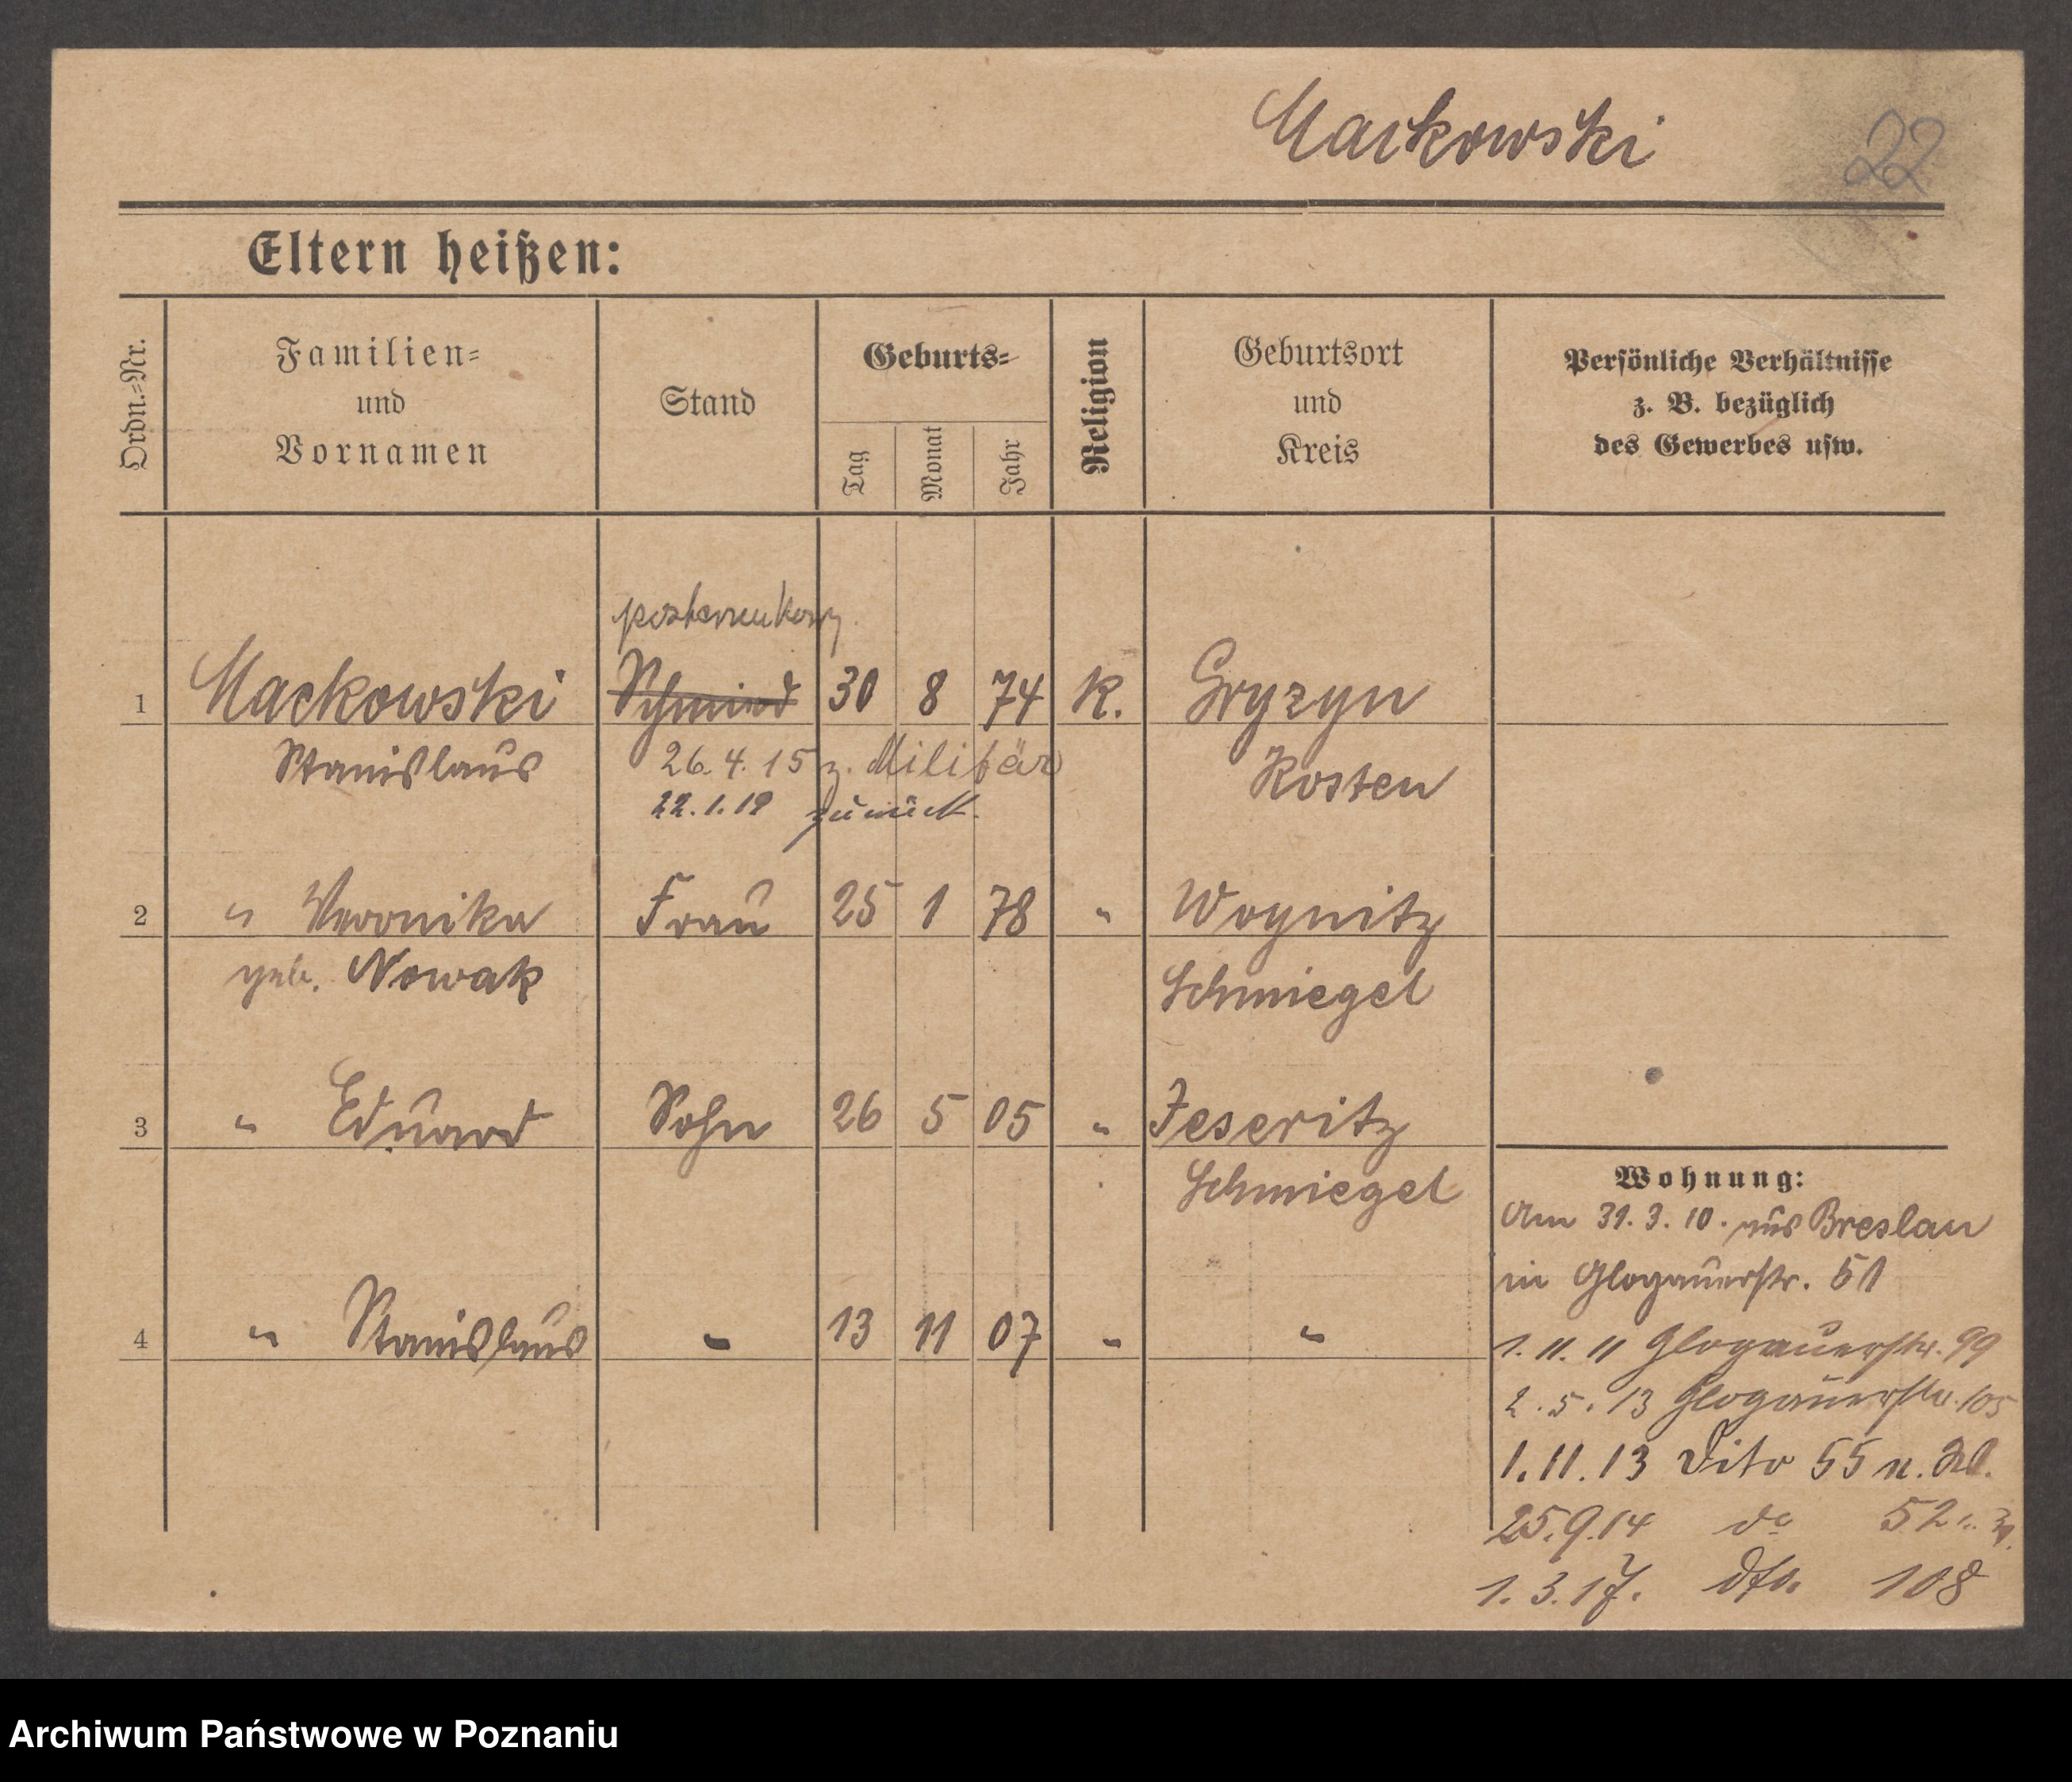 Mackowski 22
Eltern heißen:
Ordn.=Nr.
Familien=
und
Vornamen
Stand
Geburts=
Tag
Monat
Jahr
Religion
Geburtsort
und
Kreis
Persönliche Verhältnisse
z. B. bezüglich
des Gewerbes usw.
1 Mackowski Schmied 30 8 74 K. Gryzyn
Stanislaus 26.4.15 z. Militär Kosten
22.1.19 zurück.
2 " Veronika Frau 25 1 78 " Woynitz
geb. Nowak Schmiegel
3 " Eduard Sohn 26 5 05 " Jeseritz
Schmiegel
4 " Stanislaus " 13 11 07 " "
Wohnung:
Am 31.3.10. aus Breslau
in Glogauerstr. 51
1.11.11 Glogauerstr. 99
2.5.13 Glogauerstr. 105
1.11.13 dito 55 n.
25.9.14 do 52
1.3.17. dto. 108
Archiwum Państwowe w Poznaniu